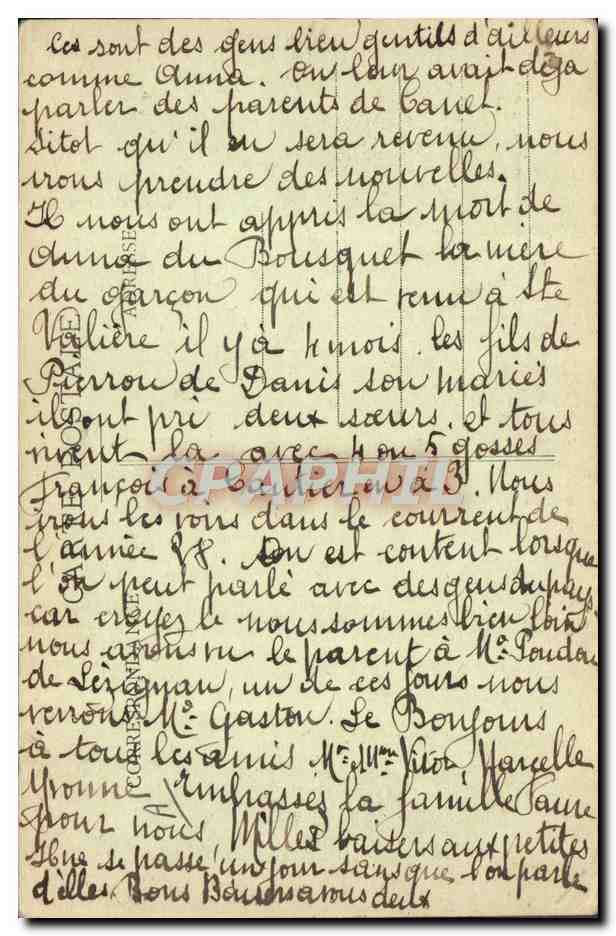 Ces sont des gens bien gentils d'ailleurs
comme Anna. On leur avait déja
parler des parents de Canet.
Sitot qu'il en sera revenu, nous
irons prendre des nouvelles.
Il nous ont appris la mort de
Anna du Bousquet la mère
du garçon qui est venu à Ste
Valière il y à 4 mois. les fils de
Pierrou de Danis son mariés
ils ont pri deux sœurs. et tous
vivent la avec 4 ou 5 gosses
françois à Cantier en à 3. Nous
irons les voirs dans le courrent de
l'année 28. on est content lorsque
l'on peut parlé avec des gens du pays
car croyez le nous sommes bien loin
nous avons vu le parent à Ma Poudou
de Lézignan, un de ces jours nous
verrons Mo Gaston. Le Bonjours
à tous les amis Mr Mme Victor Marcelle
Yvonne Emprassés la famille Faure
pour nous, Milles baisers aux petites
Il ne se passe, un jour sans que l'on parle
d'elles. Bons Baisers a vous deux
CARTE POSTALE
CORRESPONDANCE
ADRESSE
CPAPHIL